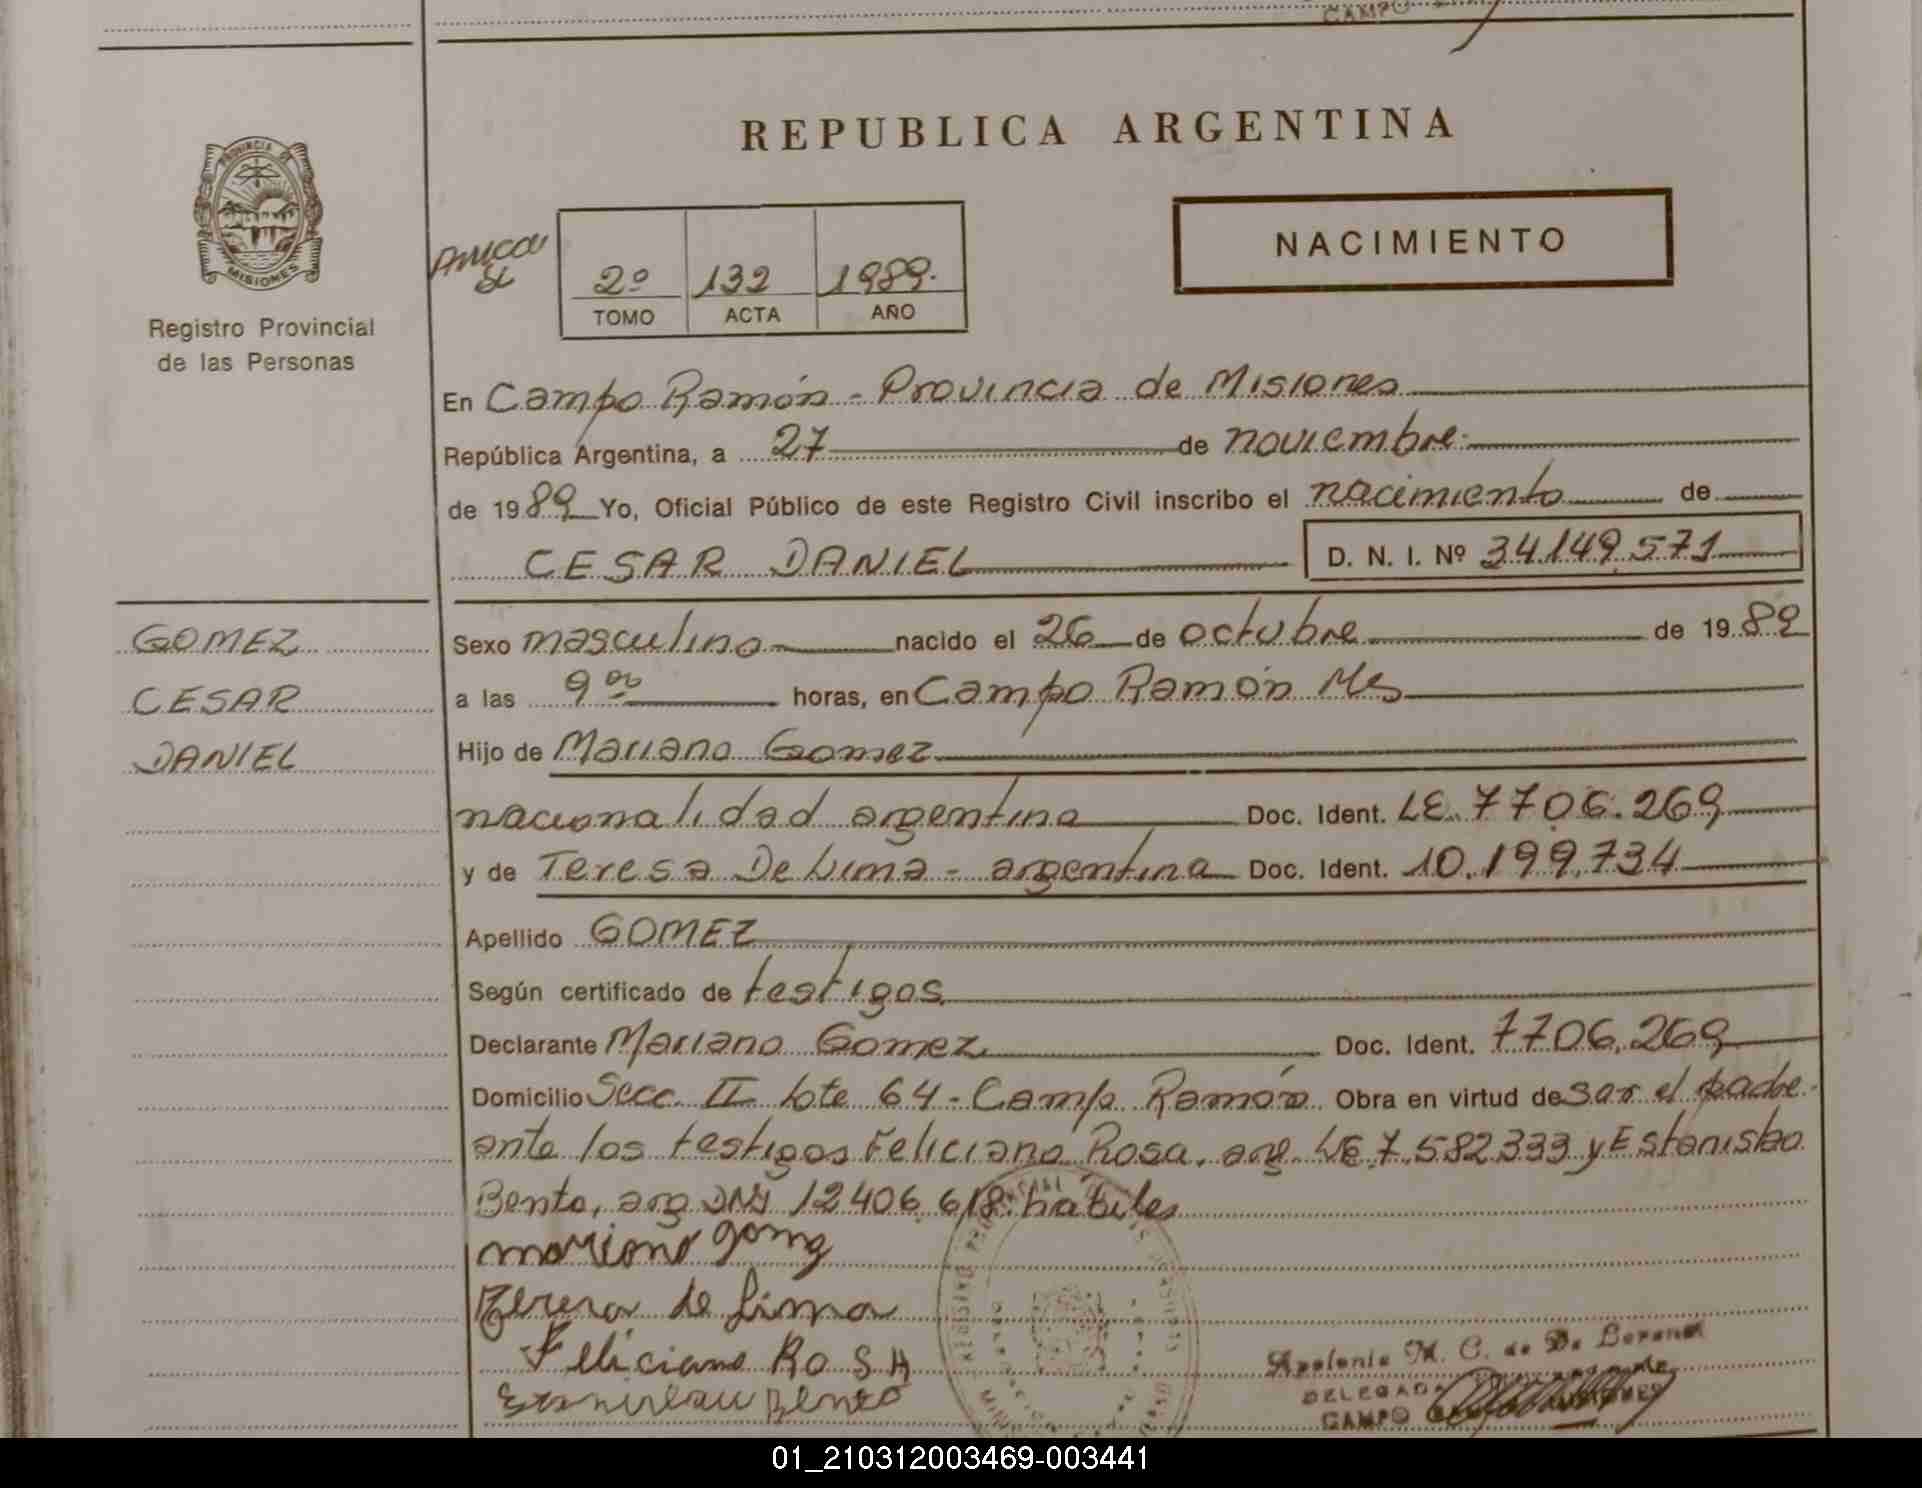 CAMPO
REPUBLICA ARGENTINA
PROVINCIA DE
MISIONES
Registro Provincial
de las Personas
2º 132 1989.
TOMO ACTA AÑO
NACIMIENTO
En Campo Ramón - Provincia de Misiones
República Argentina, a 27 de noviembre.
de 1989 Yo, Oficial Público de este Registro Civil inscribo el nacimiento de
CESAR DANIEL D. N. I. Nº 34.149.571
GOMEZ
CESAR
DANIEL
Sexo masculino nacido el 26 de octubre de 1989
a las 9 00 horas, en Campo Ramón Ms
Hijo de Mariano Gomez
nacionalidad argentina Doc. Ident. LE. 7706.269
y de Teresa De Lima - argentina Doc. Ident. 10.199.734
Apellido GOMEZ
Según certificado de testigos
Declarante Mariano Gomez Doc. Ident. 7706.269
Domicilio Secc II Lote 64 - Campo Ramón Obra en virtud de ser el padre.
ante los testigos Feliciano Rosa, arg. LE 7.582333 y Estanislao
Bento, arg DNI 12406.618. habiles
mariano gomez
Teresa de Lima
Feliciano ROSA
Estanislau Bento
Apolonia M. C. de De Lorena
DELEGADA
CAMPO
01_210312003469-003441